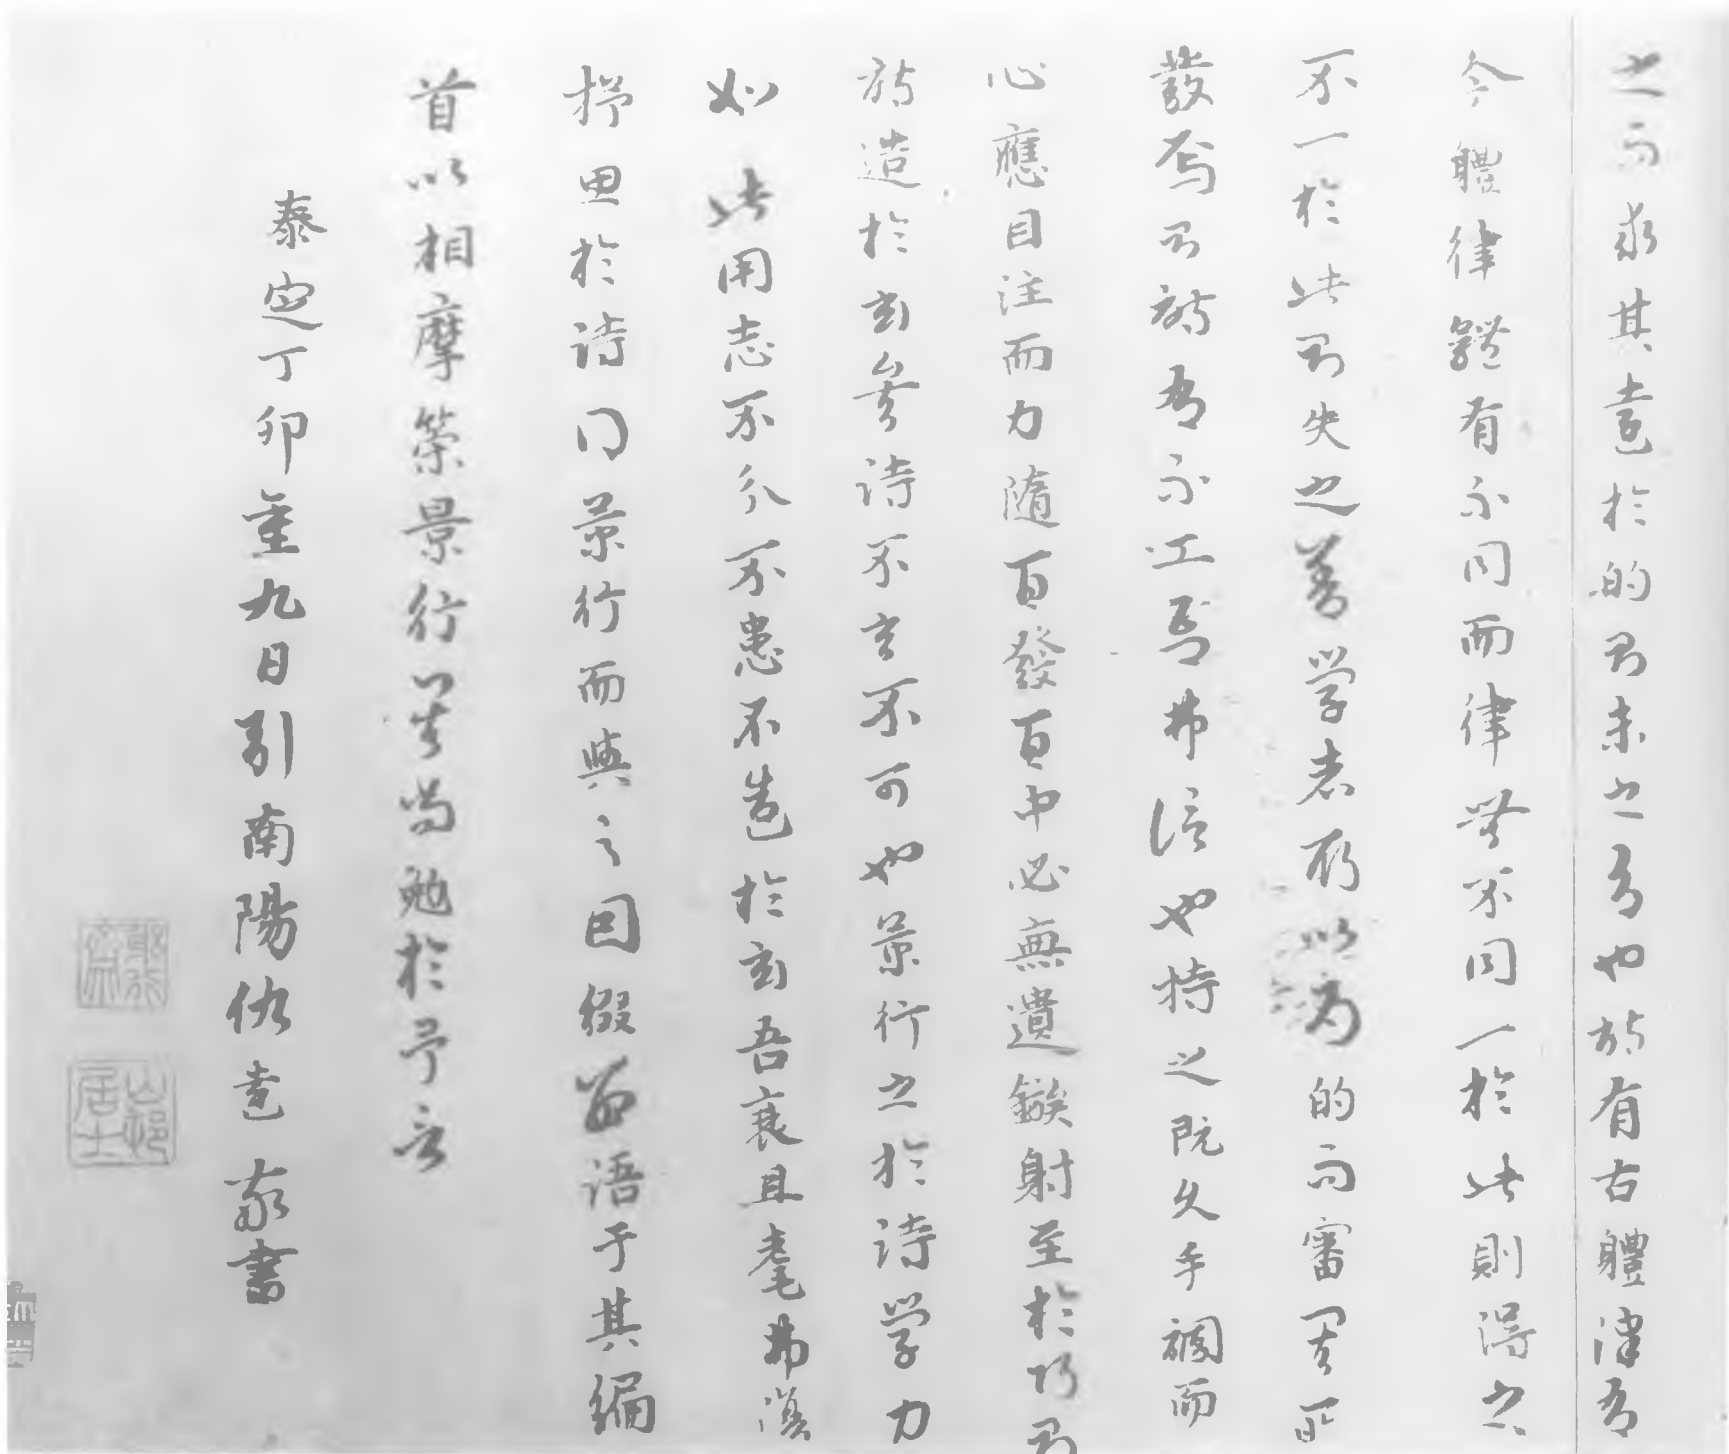 之而求其遠於的則未之有也詩有古體律有
今體律體有不同而律無不同一於此則得之
不一於此則失之善學者所以為的而審其正
發焉則詩有不工吾弗信也持之既久手調而
心應目注而力隨百發百中必無遺鏃射至於巧則
詩造於玄矣詩不玄不可也景行之於詩學力
如此用志不分不患不造於玄吾衰且耄弗復
抒思於詩景行而與之因綴語于其編
首以相摩榮景行其尚勉於予言
泰定丁卯重九日引南陽仇遠敬書
山邨居士